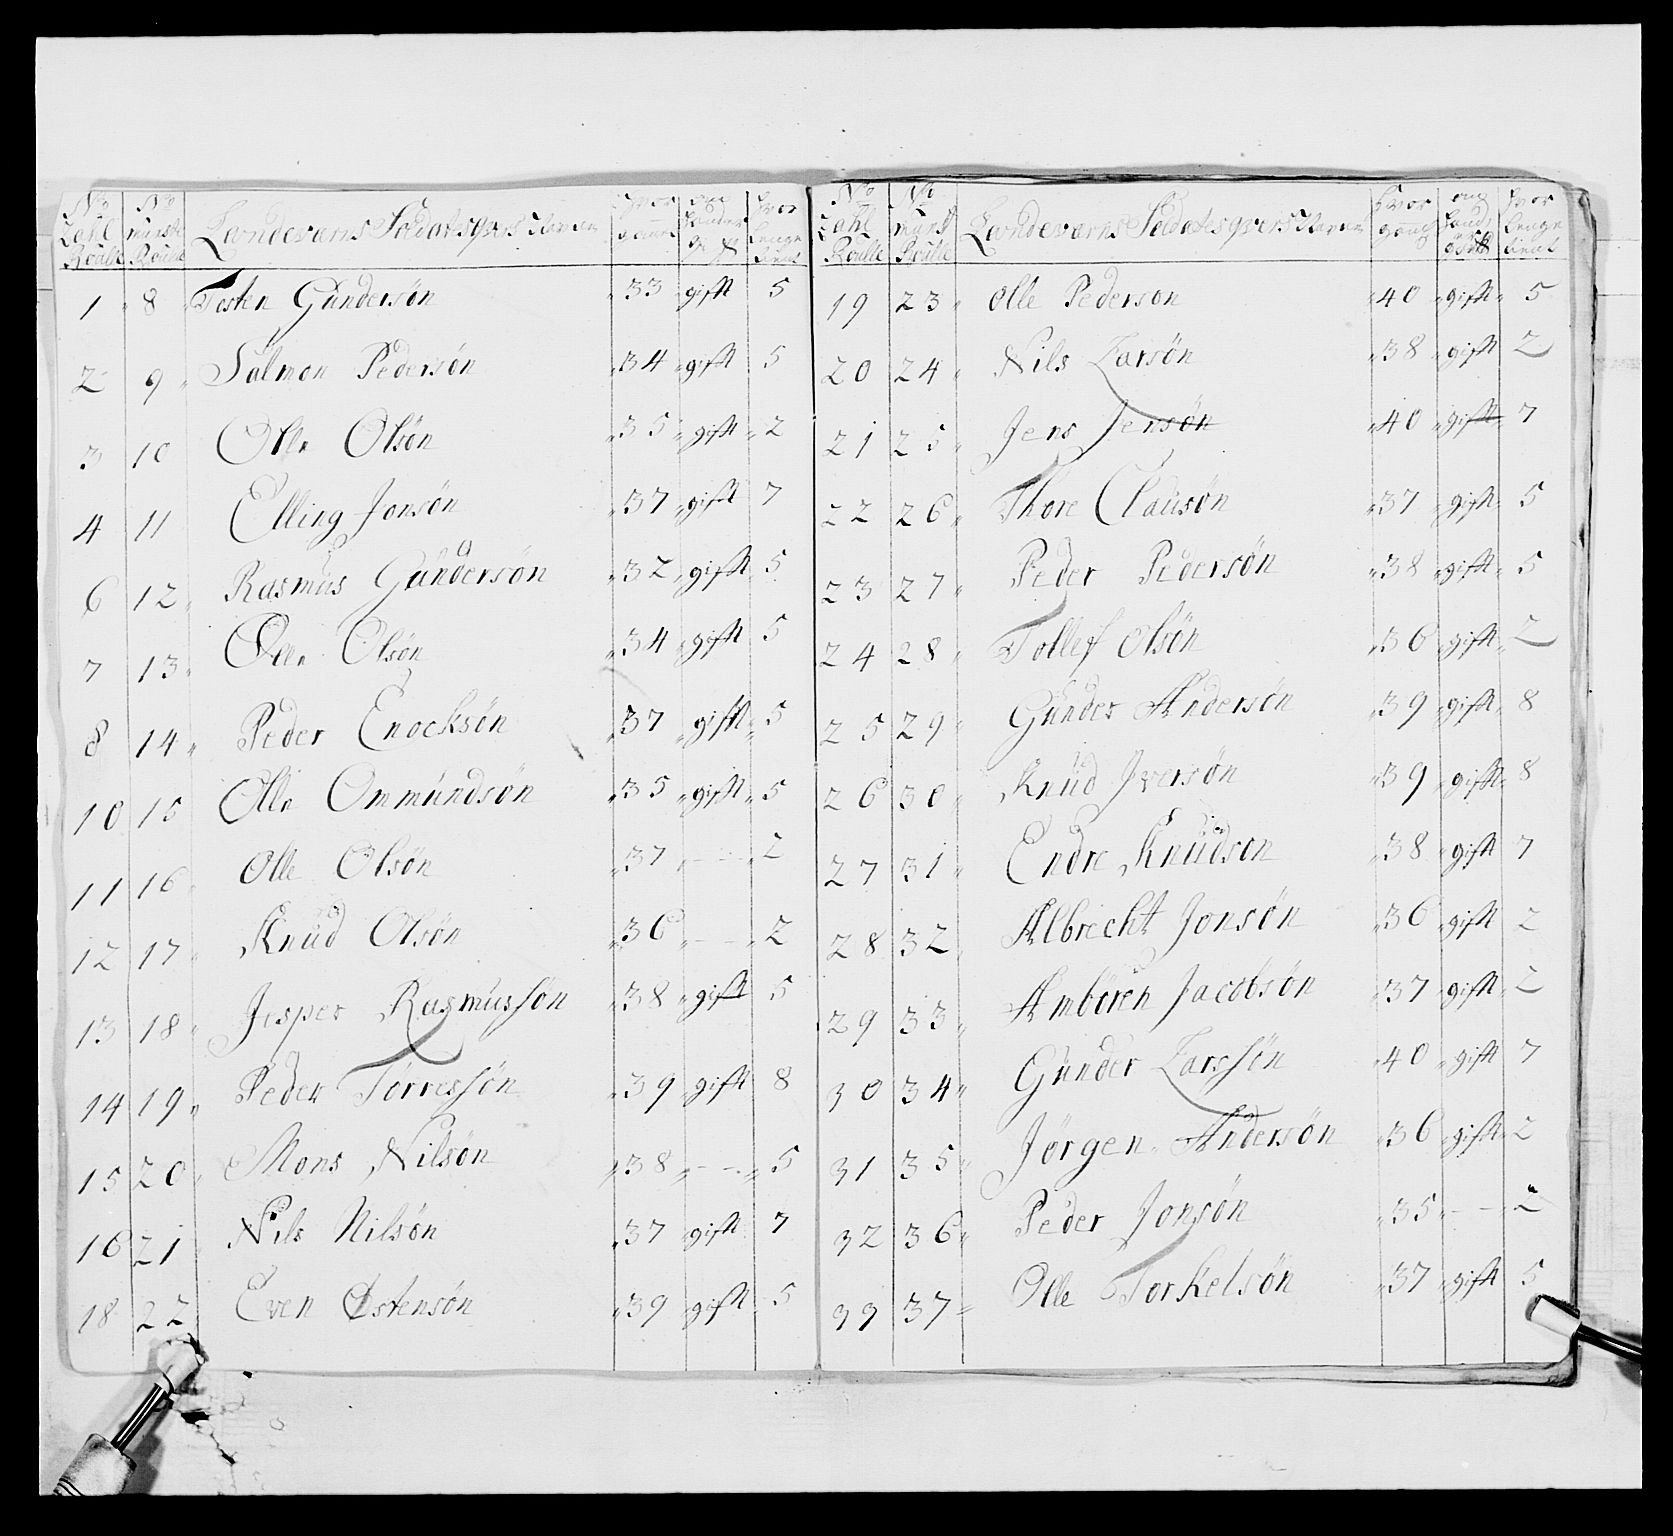 No Zahl Roulle | No mynst Roulle | Landeværns Soldatesqvets Navne | Hvor gaml | om | Hvor lenge tient
1 8 Tosten Gundersön 33 gift 5
2 9 Salmon Pedersön 34 gift 5
3 10 Olle Olsön 35 gift 2
4 11 Elling Jonsön 37 gift 7
6 12 Rasmus Gundersön 32 gift 5
7 13 Olle Olsön 34 gift 5
8 14 Peder Enocksön 37 gift 5
10 15 Olle Ommundsön 35 gift 5
11 16 Olle Olsön 37 - - 2
12 17 Knud Olsön 36 - - 2
13 18 Jesper Rasmussön 38 gift 5
14 19 Peder Torressön 39 gift 8
15 20 Mons Nilsön 38 - - 5
16 21 Nils Nilsön 37 gift 7
18 22 Even Østensön 39 gift 5
No Zahl Roulle | No mynst Roulle | Landeværns Soldatesqvets Navne | Hvor gaml | om | Hvor lenge tient
19 23 Olle Pederson 40 gift 5
20 24 Nils Larsön 38 gift 2
21 25 Jens Jensön 40 gift 7
22 26 Thore Clausön 37 gift 5
23 27 Peder Pedersön 38 gift 5
24 28 Tollef Olsön 36 gift 2
25 29 Gunder Andersön 39 gift 8
26 30 Knud Iversön 39 gift 8
27 31 Endre Knudson 38 gift 7
28 32 Albrecht Jonsön 36 gift 2
29 33 Amboren Jacobsön 37 gift 2
30 34 Gunder Larssön 40 gift 7
31 35 Jörgen Andersön 36 gift 2
32 36 Peder Jonsön 35 - - 2
33 37 Olle Torkelsön 37 gift 5